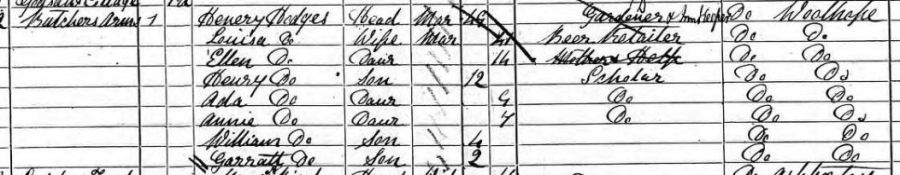 Butchers Arms 1 Henery Hodges Head Mar 49 Gardener & Inn Keeper Do Woolhope
Louisa Do Wife Mar Beer Retailer Do Do
Ellen Do Daur 14 Mothers Help Do Do
Henry Do Son 12 Scholar Do Do
Ada Do Daur 9 Do Do Do
Annie Do Daur 7 Do Do Do
William Do Son 4 Do Do
Garratt Do Son 2 Do Do